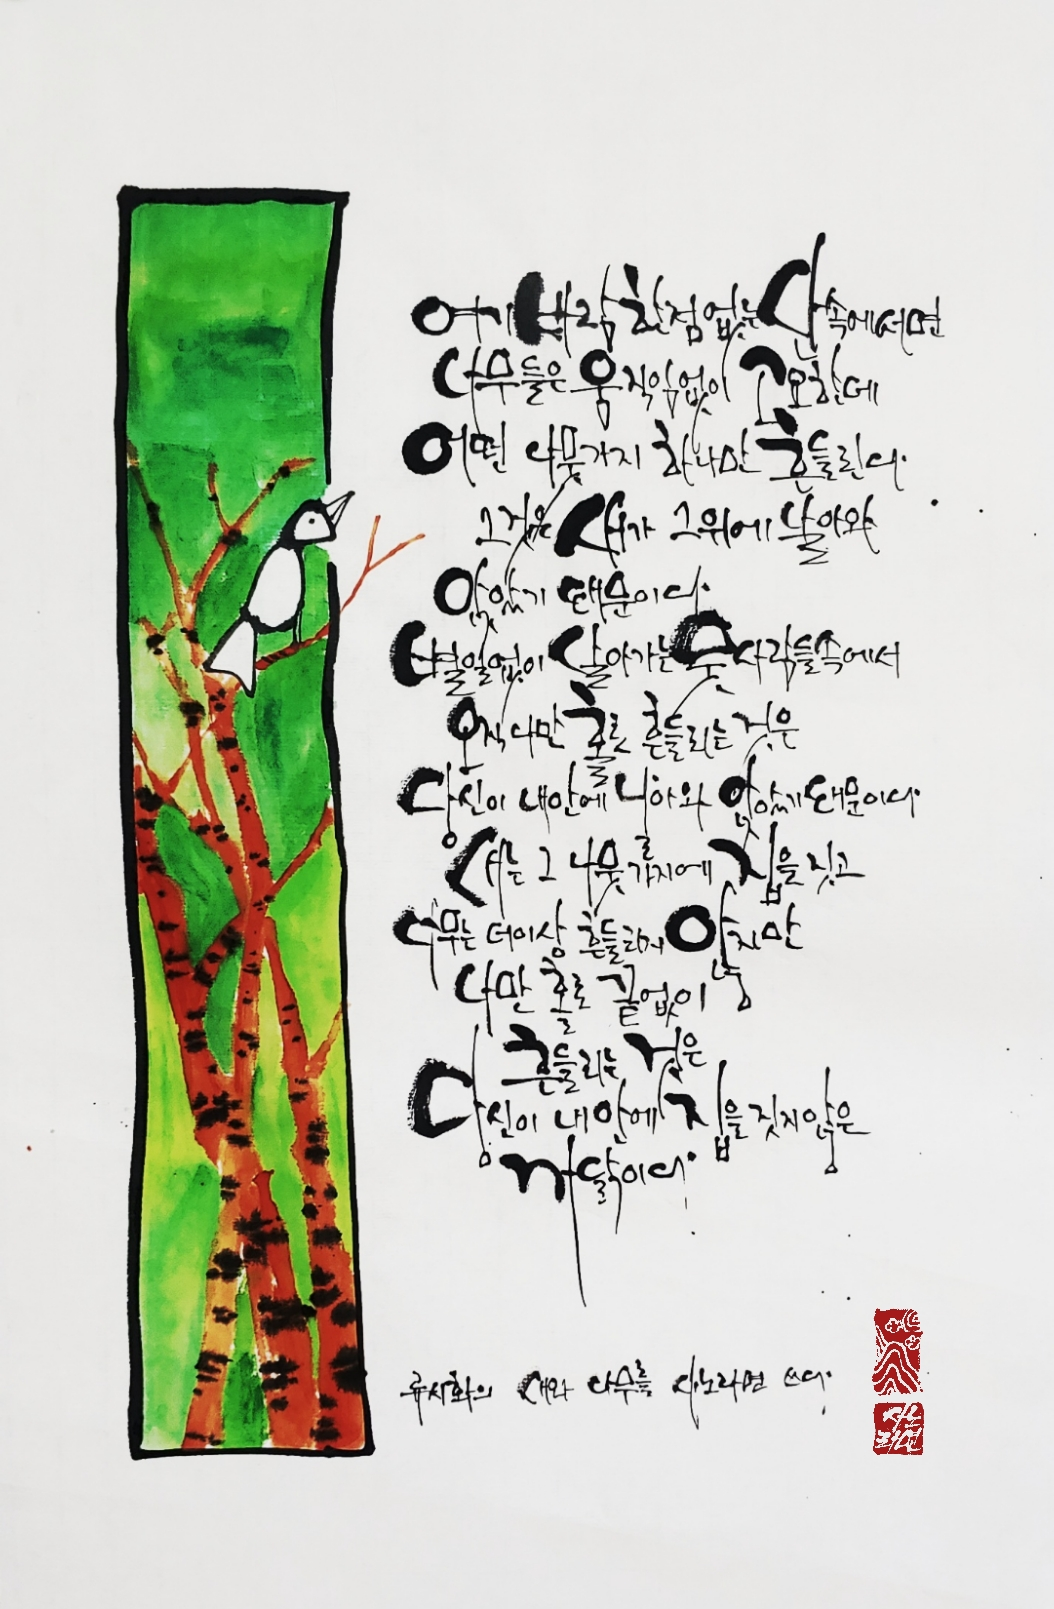 여기 바람 한점 없는 산속에 서면
나무들은 움직임 없이 고요한데
어떤 나뭇가지 하나만 흔들린다.
그것은 새가 그 위에 날아와
앉았기 때문이다.
별일없이 살아가는 뭇사람들 속에서
오직 나만 홀로 흔들리는 것은
당신이 내 안에 날아와 앉았기 때문이다.
새는 그 나뭇가지에 집을 짓고
나무는 더이상 흔들리지 않지만
나만 홀로 끝없이
흔들리는 것은
당신이 내 안에 집을 짓지 않은
까닭이다.
류시화의 새와 나무를 시노라면 쓰다.
시노
라면